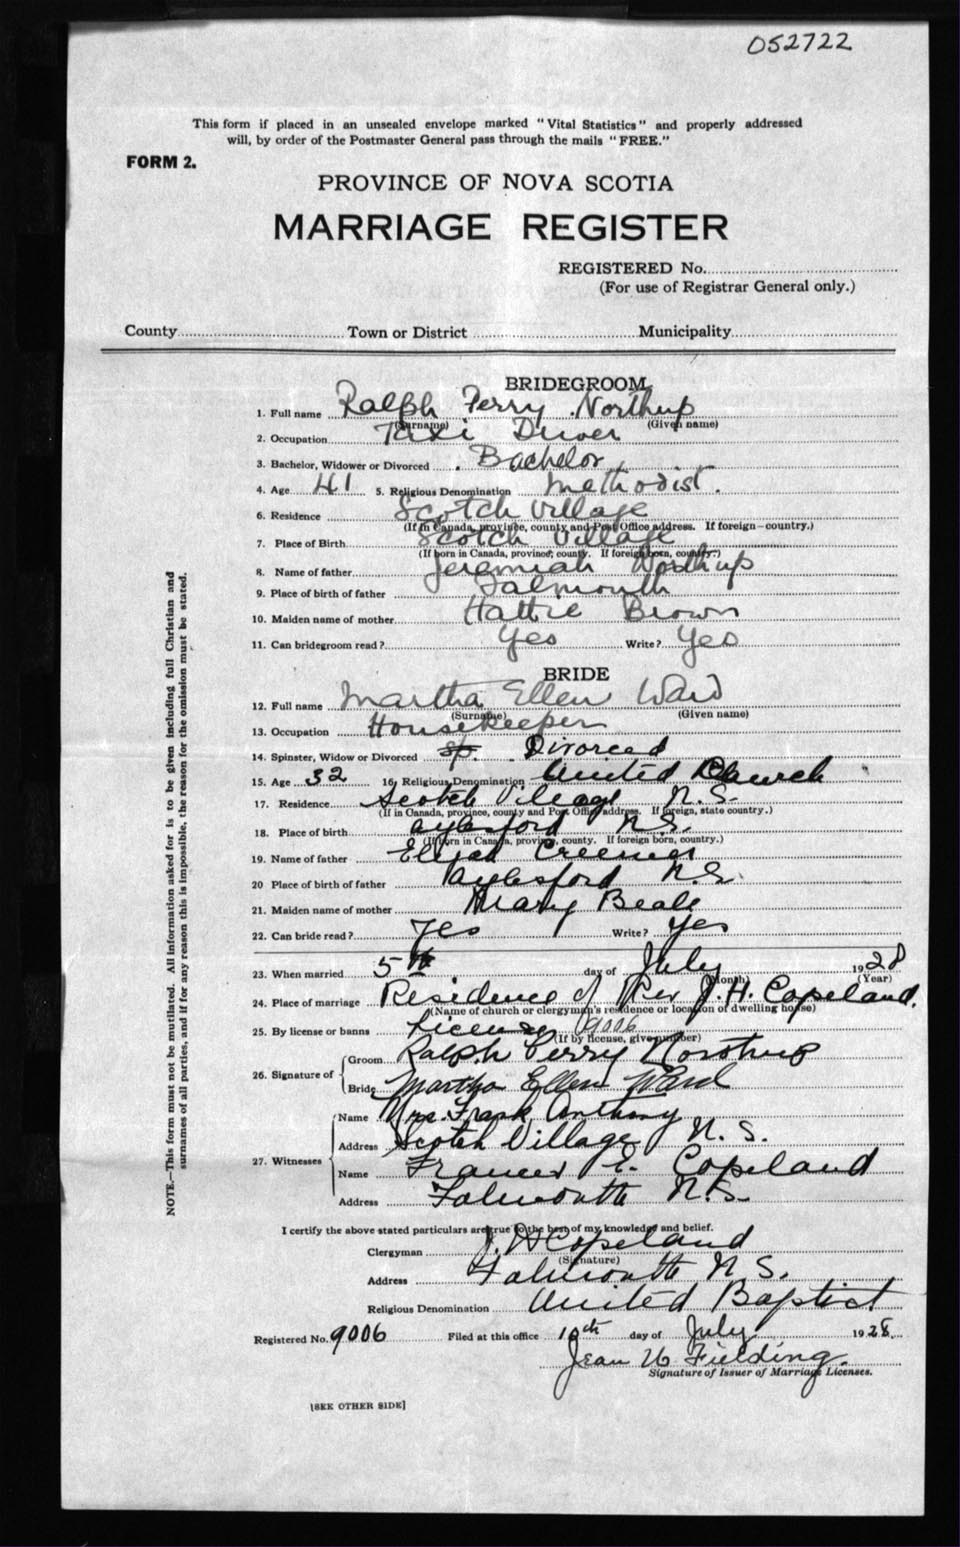 052722
This form if placed in an unsealed envelope marked "Vital Statistics" and properly addressed
will, by order of the Postmaster General pass through the mails "FREE."
FORM 2.
PROVINCE OF NOVA SCOTIA
MARRIAGE REGISTER
REGISTERED No.
(For use of Registrar General only.)
County Town or District Municipality
BRIDEGROOM
1. Full name Ralph Perry Northup
(Surname) (Given name)
2. Occupation Taxi Driver
3. Bachelor, Widower or Divorced Bachelor
4. Age 41 5. Religious Denomination Methodist.
6. Residence Scotch Village
(If in Canada, province, county and Post Office address. If foreign—country.)
7. Place of Birth Scotch Village
(If born in Canada, province, county. If foreign born, country.)
8. Name of father Jeremiah Northup
9. Place of birth of father Falmouth
10. Maiden name of mother Hattie Brown
11. Can bridegroom read? Yes Write? Yes
BRIDE
12. Full name Martha Ellen Ward
(Surname) (Given name)
13. Occupation Housekeeper
14. Spinster, Widow or Divorced Sp. Divorced
15. Age 32 16. Religious Denomination United Church
17. Residence Scotch Village N.S.
(If in Canada, province, county and Post Office address. If foreign, state country.)
18. Place of birth Aylesford N.S.
(If born in Canada, province, county. If foreign born, country.)
19. Name of father Elijah
20 Place of birth of father Aylesford N.S
21. Maiden name of mother Mary Beals
22. Can bride read? Yes Write? Yes
23. When married 5th day of July 1928
(Month) (Year)
24. Place of marriage Residence of Rev J. H. Copeland.
(Name of church or clergyman's residence or location of dwelling house)
25. By license or banns License 9006
(If by license, give number)
26. Signature of Groom Ralph Perry Northup
Bride Martha Ellen Ward
27. Witnesses Name Mrs. Frank Anthony
Address Scotch Village N. S.
Name Frances E. Copeland
Address Falmouth N.S.
I certify the above stated particulars are true to the best of my knowledge and belief.
Clergyman J. H Copeland
(Signature)
Address Falmouth N. S.
Religious Denomination United Baptist
Registered No. 9006 Filed at this office 10th day of July 1928
Jean Fielding.
Signature of Issuer of Marriage Licenses.
[SEE OTHER SIDE]
NOTE.—This form must not be mutilated. All information asked for is to be given including full Christian and
surnames of all parties, and if for any reason this is impossible, the reason for the omission must be stated.